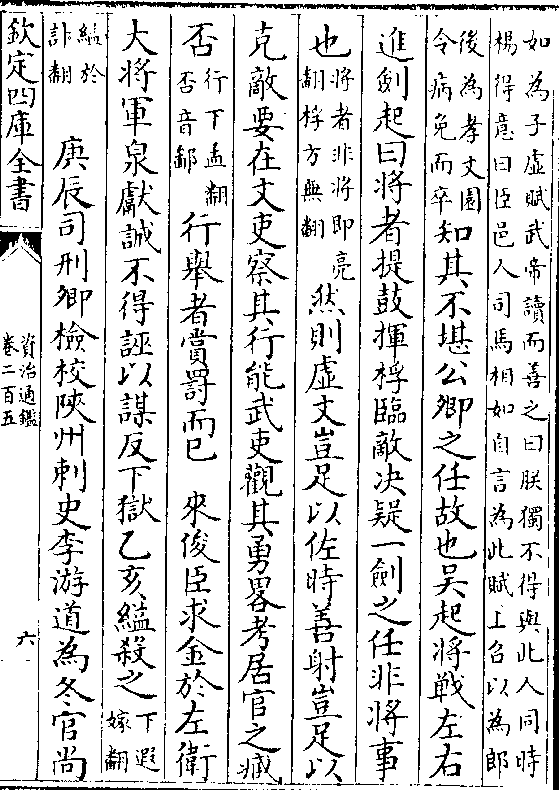 如為子虛賦武帝讀而善之曰朕獨不得與此人同時
楊得意曰臣邑人司馬相如自言為此賦上召以為郎
後為孝文園
令病免而卒
知其不堪公卿之任故也吳起將戰左右
進劍起曰將者提鼓揮桴臨敵決疑一劍之任非將事
也
將者非將即亮
翻桴方無翻
然則虛文豈足以佐時善射豈足以
克敵要在文吏察其行能武吏觀其勇畧考居官之臧
否
行下孟翻
否音鄙
行舉者賞罰而已 來俊臣求金於左衛
大將軍泉獻誠不得誣以謀反下獄乙亥縊殺之
下遐
嫁翻
縊於
計翻
庚辰司刑卿檢校陝州刺史李游道為冬官尚
欽定四庫全書
資治通鑑
卷二百五
六